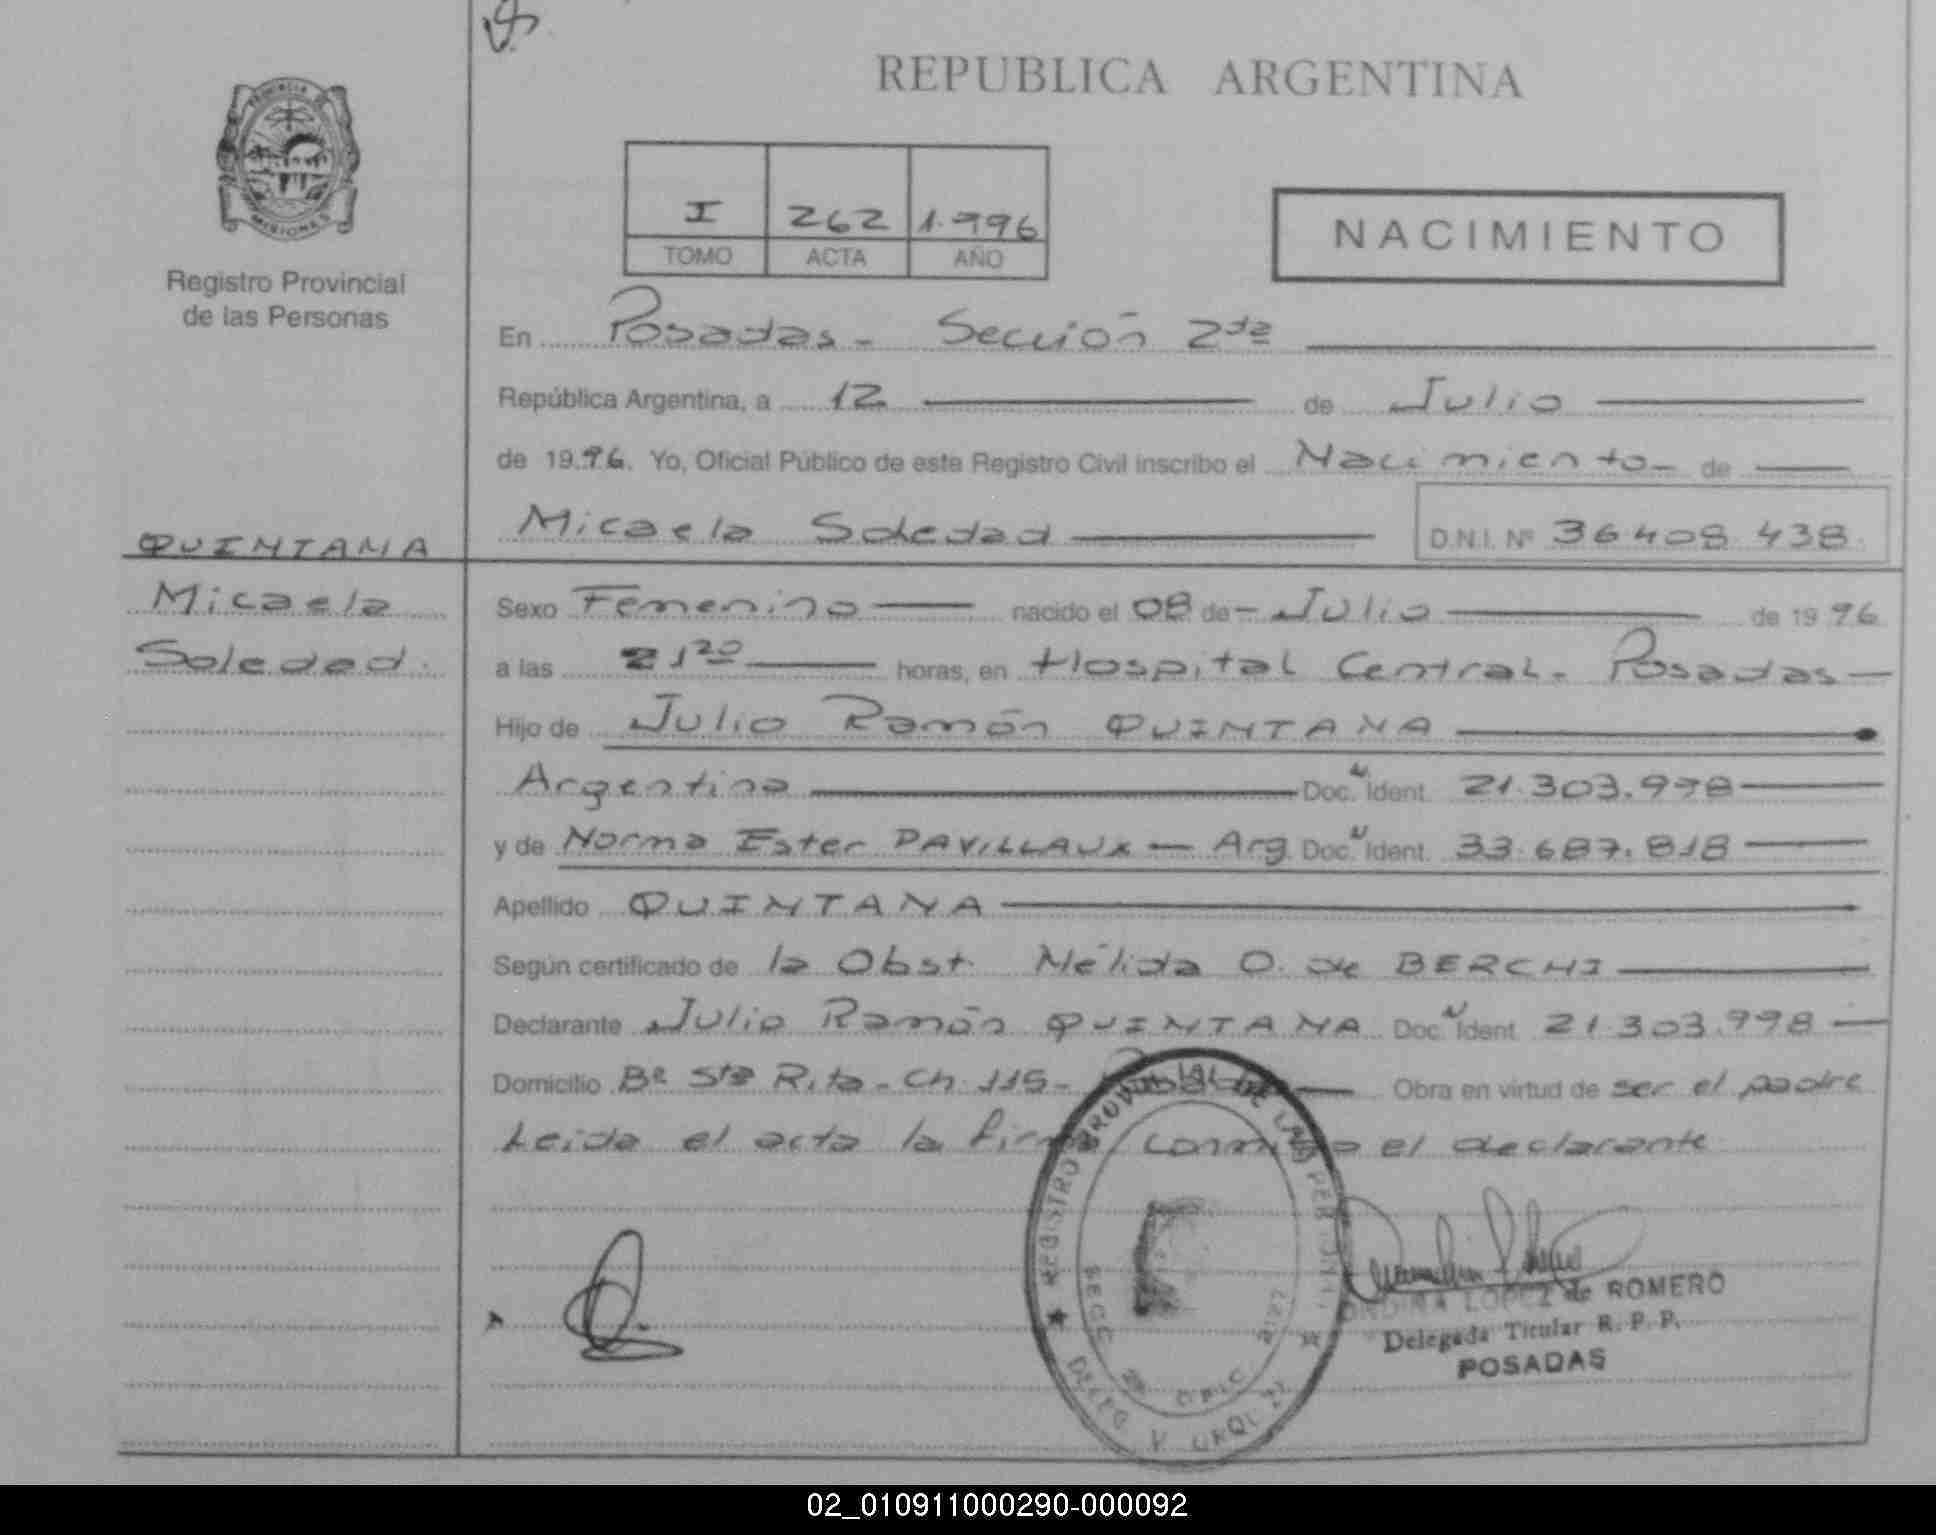 REPUBLICA ARGENTINA
PROVINCIA DE
MISIONES
Registro Provincial
de las Personas
I 262 1.996
TOMO ACTA AÑO
NACIMIENTO
En Posadas - Sección 2da
República Argentina, a 12 de Julio
de 1996. Yo, Oficial Público de este Registro Civil inscribo el Nacimiento - de
Micaela Soledad D.N.I. Nº 36408.438.
QUINTANA
Micaela
Soledad.
Sexo Femenino nacido el 08 de - Julio de 1996
a las 21 20 horas, en Hospital Central. Posadas
Hijo de Julio Ramón QUINTANA
Argentina Doc. N Ident. 21.303.998
y de Norma Ester PAVILLAUX - Arg. Doc. N Ident. 33.687.818
Apellido QUINTANA
Según certificado de la Obst. Nélida O. de BERCHI
Declarante Julio Ramón QUINTANA Doc. N Ident. 21.303.998
Domicilio Bº Sta Rita - Ch. 115 - Obra en virtud de ser el padre
Leída el acta la firma conmigo el declarante
REGISTRO PROVINCIAL DE LAS PERSONAS
LOPEZ de ROMERO
Delegada Titular R. P. P.
POSADAS
02_010911000290-000092